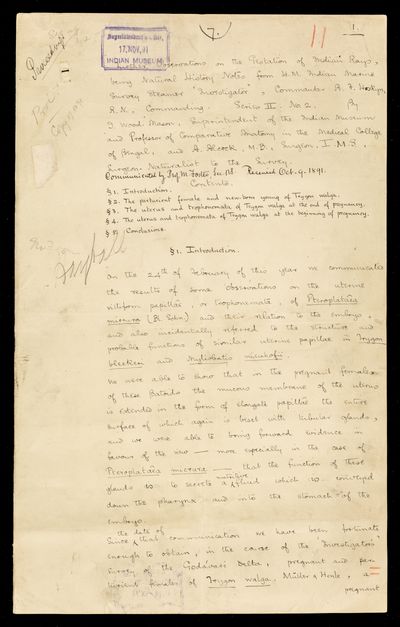 7.
1.
11
Superintendent's Office,
17.NOV.91
INDIAN MUSEUM
Proceedings
Further Observations on the Gestation of Indian Rays,
being Natural History Notes from H.M. Indian Marine
Survey Steamer 'Investigator', Commander R. F. Hoskyn,
R.N., Commanding. Series II. No 2. By
J. Wood-Mason, Superintendent of the Indian Museum
and Professor of Comparative Anatomy in the Medical College
of Bengal, and A. Alcock, M.B., Surgeon, I.M.S.,
Surgeon Naturalist to the Survey.
Communicated by Prof. M. Foster, Sec. R.S. Received Oct. 9. 1891.
Contents.
§ 1. Introduction.
§ 2. The parturient female and new-born young of Trygon walga.
§ 3. The uterus and trophonemata of Trygon walga at the end of pregnancy.
§ 4. The uterus and trophonemata of Trygon walga at the beginning of pregnancy.
§ 5. Conclusions.
§ 1. Introduction.
On the 24th of February of this year we communicated
the results of some observations on the uterine
villiform papillae, or trophonemata, of Pteroplataea
micrura (Bl. Schn.) and their relation to the embryo,
and also incidentally referred to the structure and
probable functions of similar uterine papillae in Trygon
bleekeri and Myliobatis nieuhofii.
We were able to show that in the pregnant females
of these Batoids the mucous membrane of the uterus
is extended in the form of elongate papillae the entire
surface of which again is beset with tubular glands,
and we were able to bring forward evidence in
favour of the view — more especially in the case of
Pteroplataea micrura — that the function of these
glands is to secrete a nutritive fluid which is conveyed
down the pharynx and into the stomach of the
embryo.
Since the date of that communication we have been fortunate
enough to obtain, in the course of the 'Investigator's'
survey of the Godávari Delta, pregnant and par-
turient females of Trygon walga, Müller & Henle, a
pregnant